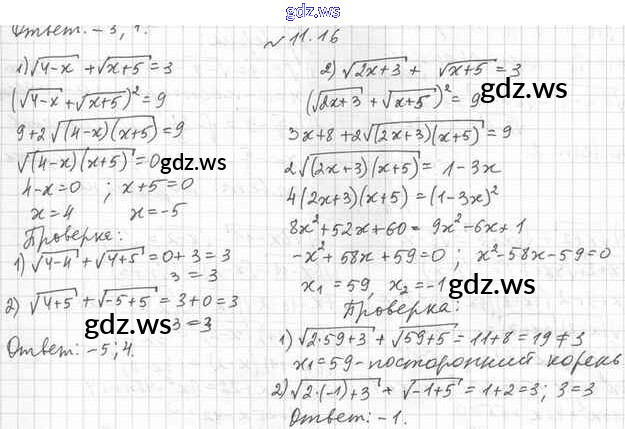 gdz.ws
Ответ: -3, 1.
№ 11.16
1) √(4-x) + √(x+5) = 3
(√(4-x) + √(x+5))² = 9
9+2√((4-x)(x+5)) = 9
√((4-x)(x+5)) = 0
gdz.ws
4-x=0 ; x+5=0
x=4 x=-5
Проверка:
1) √(4-4) + √(4+5) = 0+3=3
3=3
2) √(4+5) + √(-5+5) = 3+0=3
3=3
gdz.ws
Ответ: -5; 4.
2) √(2x+3) + √(x+5) = 3
(√(2x+3) + √(x+5))² = 9
gdz.ws
3x+8+2√((2x+3)(x+5)) = 9
2√((2x+3)(x+5)) = 1-3x
4(2x+3)(x+5) = (1-3x)²
8x²+52x+60 = 9x²-6x+1
-x²+58x+59=0 ; x²-58x-59=0
x₁=59, x₂=-1
gdz.ws
Проверка:
1) √(2·59+3) + √(59+5) = 11+8=19≠3
x₁=59-посторонний корень
2) √(2·(-1)+3) + √(-1+5) = 1+2=3; 3=3
Ответ: -1.